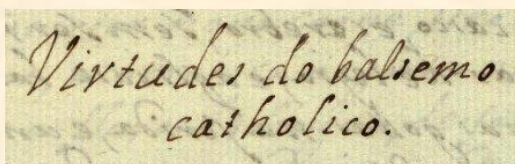 Virtudes do balsemo
catholico.